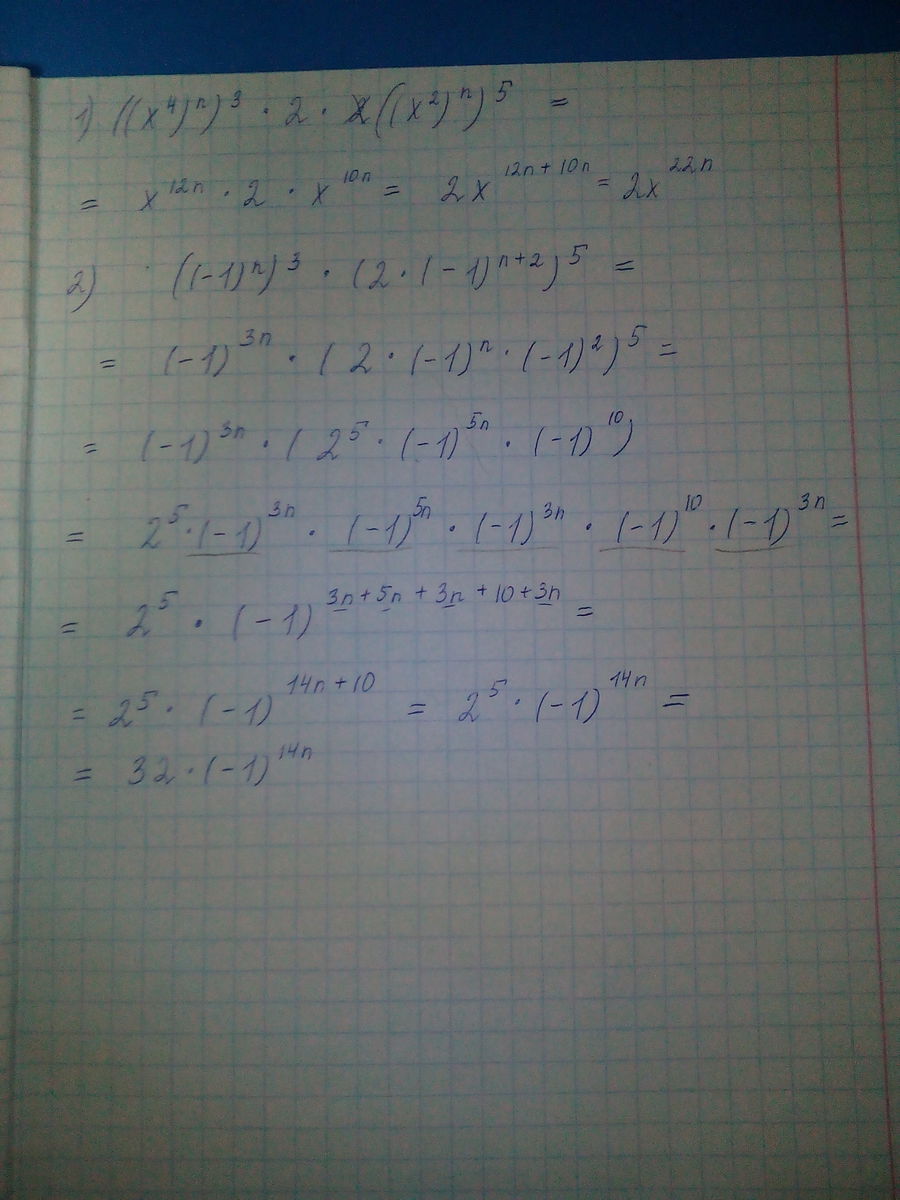 1) ((x⁴)ⁿ)³ · 2 · ((x²)ⁿ)⁵ =
= x¹²ⁿ · 2 · x¹⁰ⁿ = 2x¹²ⁿ⁺¹⁰ⁿ = 2x²²ⁿ
2) ((-1)ⁿ)³ · (2 · (-1)ⁿ⁺²)⁵ =
= (-1)³ⁿ · (2 · (-1)ⁿ · (-1)²)⁵ =
= (-1)³ⁿ · (2⁵ · (-1)⁵ⁿ · (-1)¹⁰)
= 2⁵ · (-1)³ⁿ · (-1)⁵ⁿ · (-1)³ⁿ · (-1)¹⁰ · (-1)³ⁿ =
= 2⁵ · (-1)³ⁿ⁺⁵ⁿ⁺³ⁿ⁺¹⁰⁺³ⁿ =
= 2⁵ · (-1)¹⁴ⁿ⁺¹⁰ = 2⁵ · (-1)¹⁴ⁿ =
= 32 · (-1)¹⁴ⁿ